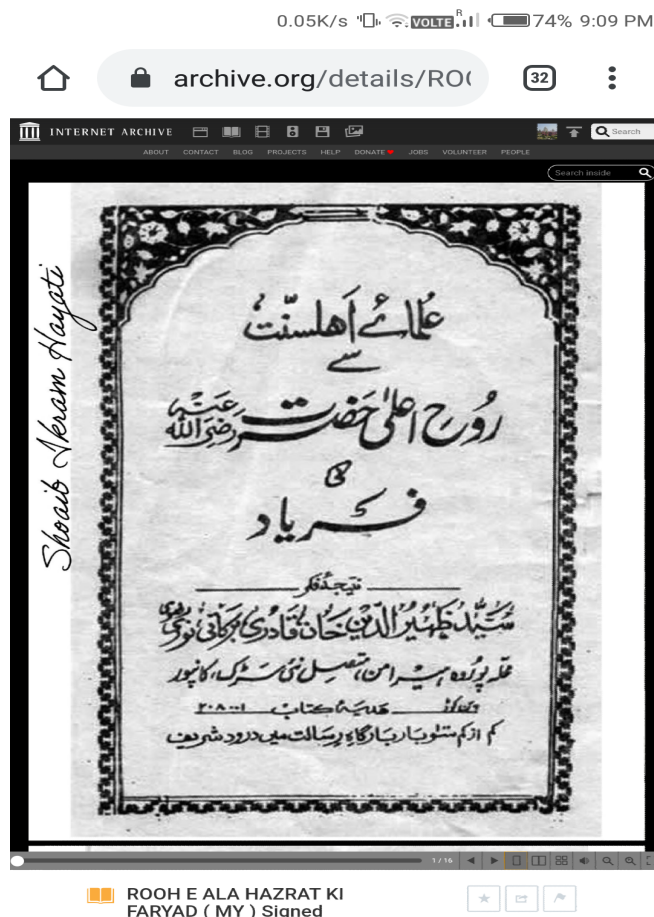 0.05K/s VOLTE R 74% 9:09 PM
archive.org/details/ROO
32
INTERNET ARCHIVE
Search
ABOUT CONTACT BLOG PROJECTS HELP DONATE JOBS VOLUNTEER PEOPLE
Search inside
Shoaib Ikram Hayati
علمائے اہلسنّت
سے
رُوحِ اعلیٰ حضرت رضی اللہ عنہ
کی
فریاد
نتیجۂ فکر
سیّد ظہیر الدین خان قادری برکاتی نوری رضوی
پوروہ ہیرامن، متصل نئی سڑک، کانپور
ہدیۂ کتاب
کم از کم سَو بار بارگاہِ رسالت میں درود شریف
1/16
ROOH E ALA HAZRAT KI
FARYAD ( MY ) Signed